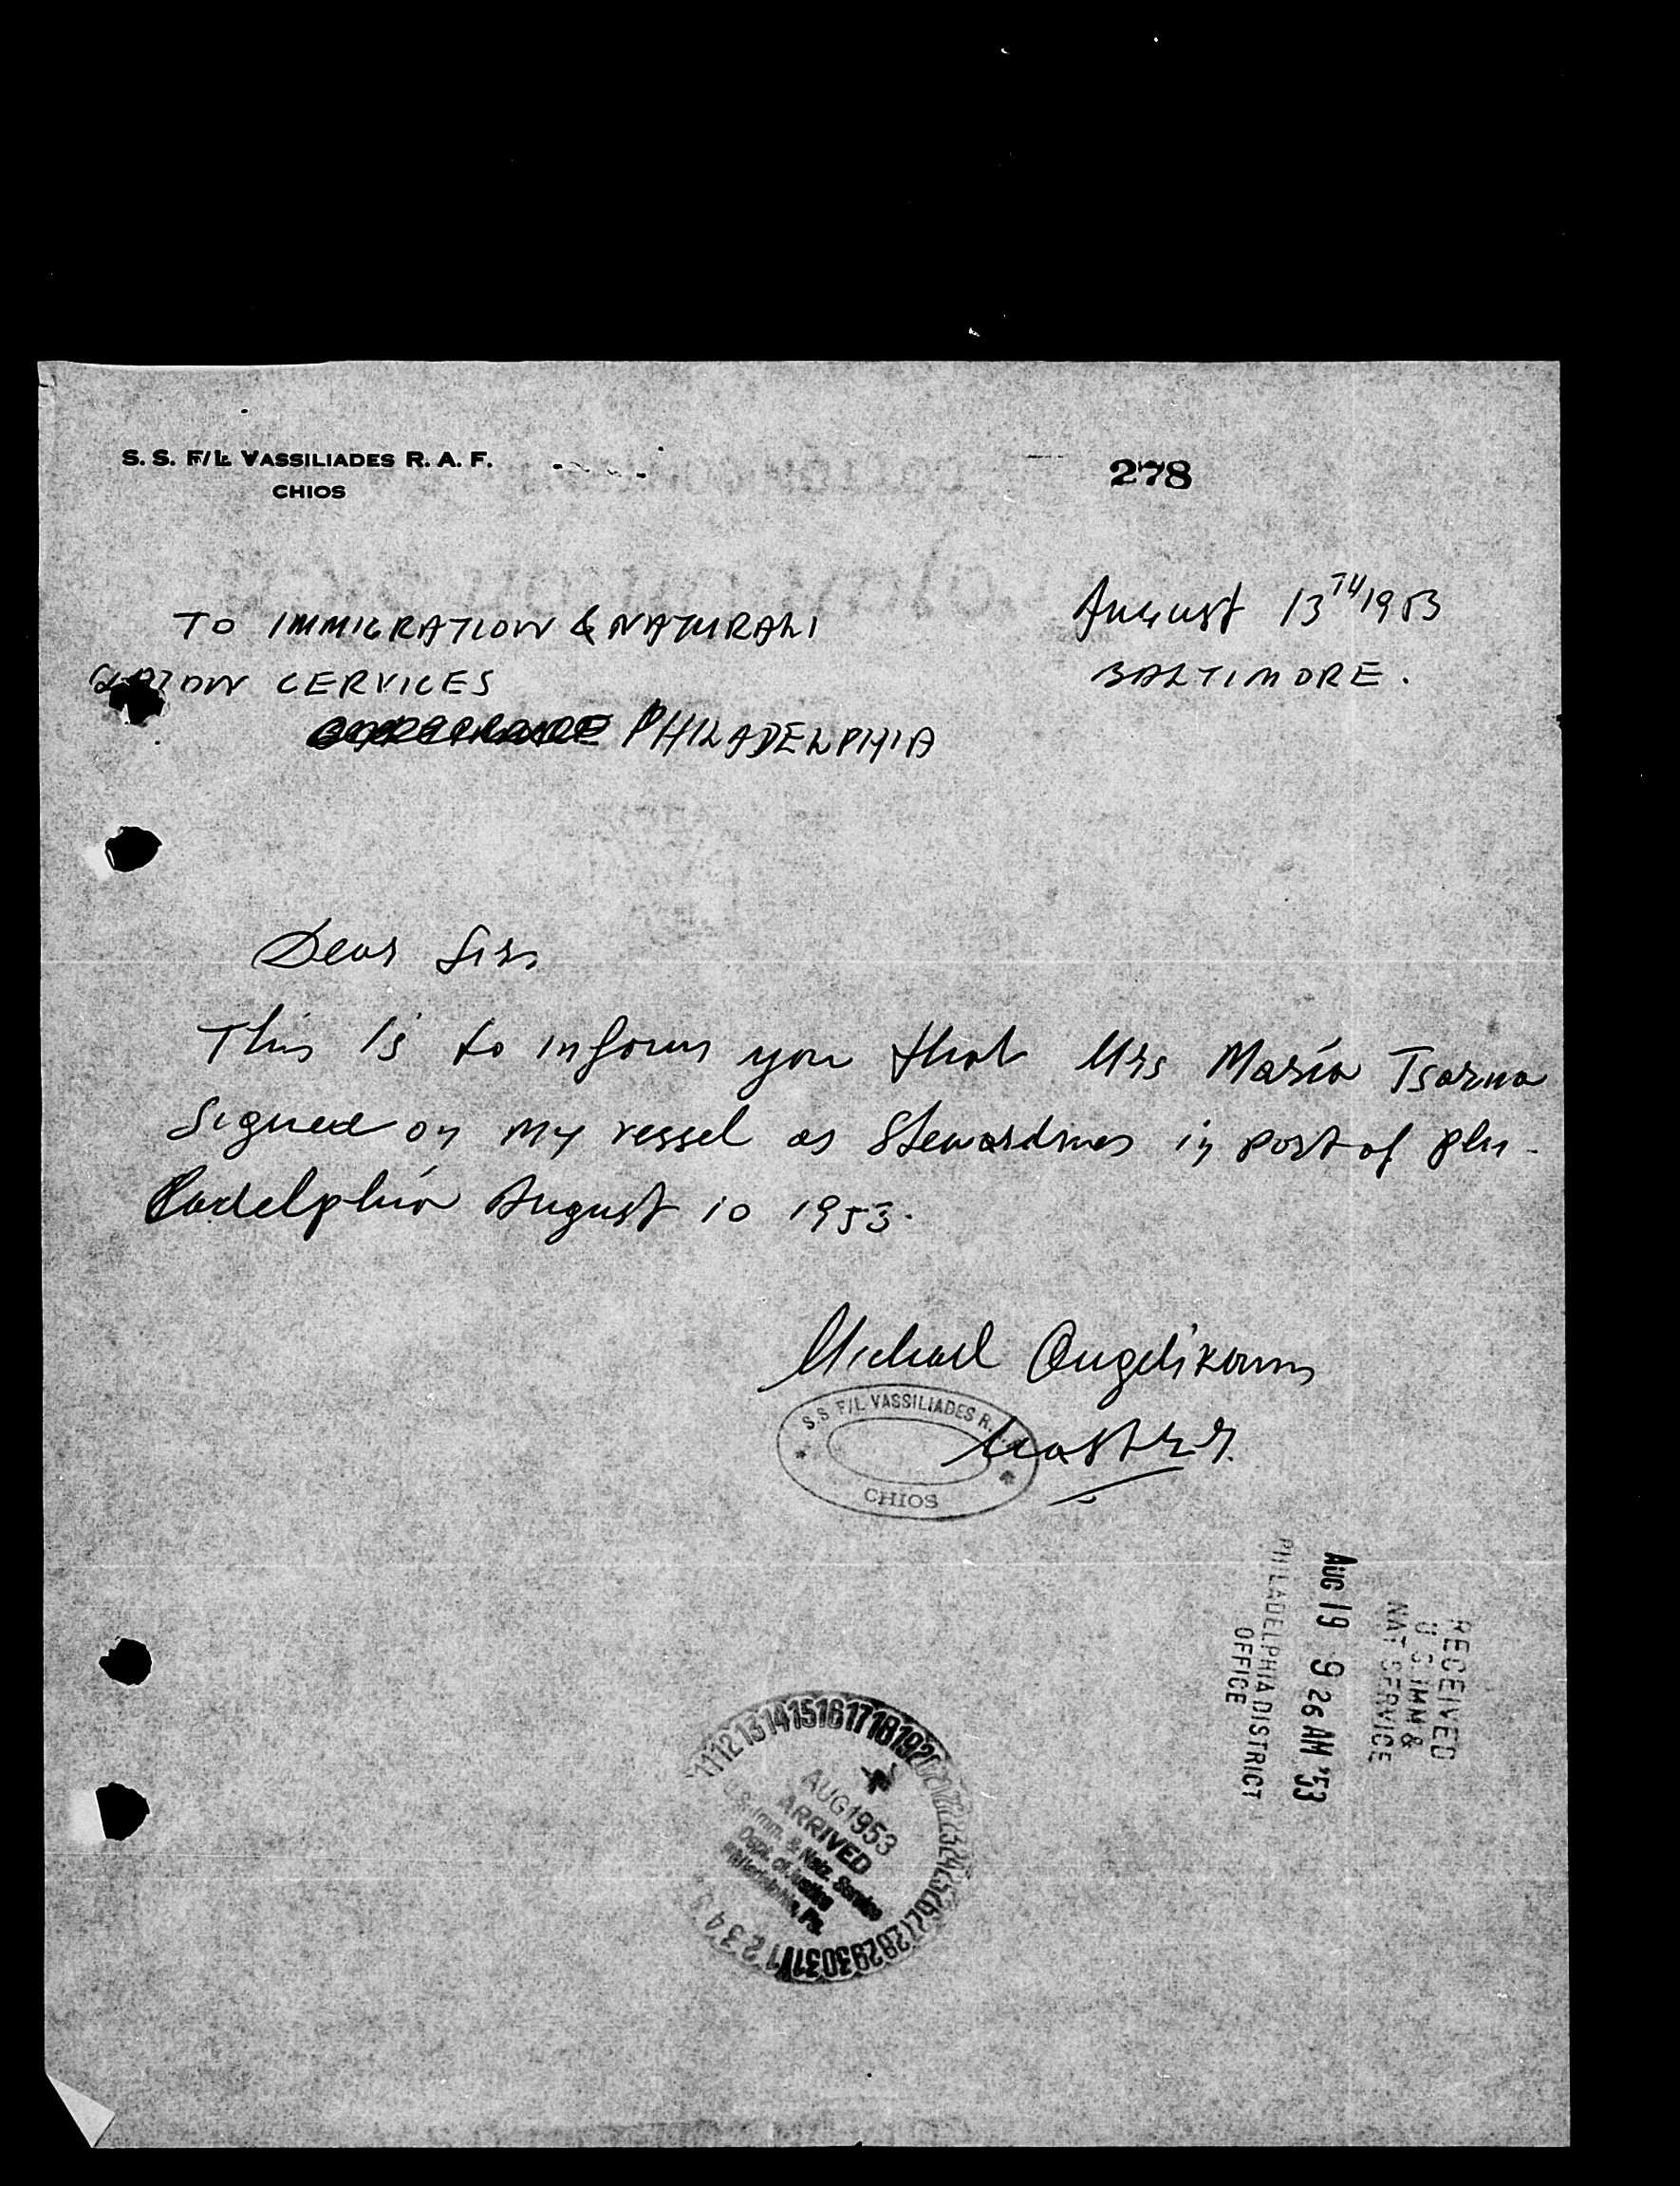 S. S. F/L VASSILIADES R. A. F.
CHIOS
278
August 13TH 1953
BALTIMORE.
TO IMMIGRATION & NATURALI
ZATION CERVICES
PHILADELPHIA
Dear Sirs
This is to inform you that Mrs Maria Tsarna
Signed on my vessel as Stewardnes in port of Phi-
ladelphia August 10 1953.
Michael
Master.
S.S F/L VASSILIADES R.
CHIOS
RECEIVED
U. S. IMM &
NAT SERVICE
AUG 19 9 26 AM '53
PHILADELPHIA DISTRICT
OFFICE
11 12 13 14 15 16 17 18 19 20 21 22 23 24 25 26 27 28 29 30 31 1 2 3 4
AUG 1953
ARRIVED
U. S. Imm. & Natz. Service
Dept. of Justice
Philadelphia, Pa.